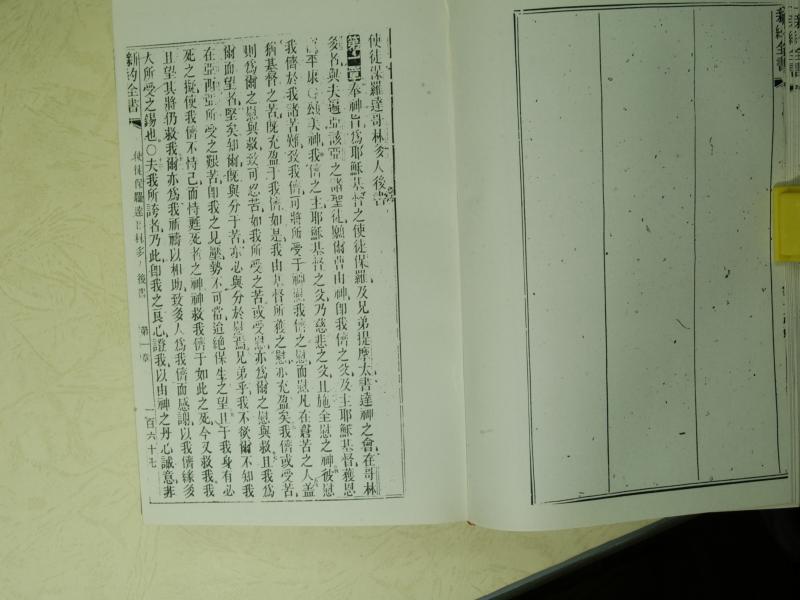 新約全書
使徒保羅達哥林多人後書
第一章奉神旨為耶穌基督之使徒保羅及兄弟提摩太書達神之會在哥林
多者與夫遍亞該亞之諸聖徒願爾曹由神即我儕之父及主耶穌基督獲恩
平康○頌美神我儕之主耶穌基督之父乃慈悲之父且施全慰之神彼慰
我儕於我諸苦難致我儕可將所受于神慰我儕之慰而慰凡在窘苦之人蓋
猶基督之苦既充盈于我儕如是我由基督所獲之慰亦充盈矣我儕或受苦
則為爾之慰與救致可忍苦如我所受之苦或受慰亦為爾之慰與救且我為
爾而望者堅矣知爾既與分于苦亦必與分於慰焉兄弟乎我不欲爾不知我
在亞西亞所受之艱苦即我之見壓勢不可當這絕保生之望且于我身有必
死之擬使我儕不恃己而恃甦死者之神神救我儕于如此之死今又救我我
且望其將仍救我爾亦為我祈禱以相助致多人為我儕而感謝以我儕緣多
人所受之錫也○夫我所誇者乃此即我之良心證我以由神之丹心誠意非
新約全書 使徒保羅達哥林多人後書 第一章 一百六十七